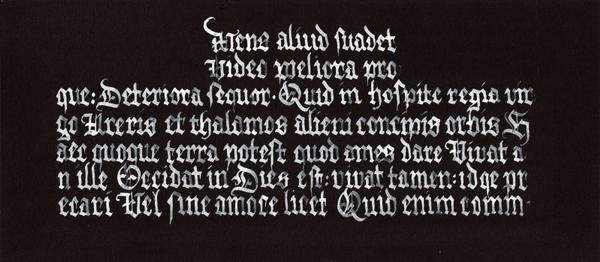 Mens aliud suadet
Video meliora pro
que: Deteriora sequor. Quid in hospite regia vir
go Vreris et thalamos alieni concipis orbis H
aec quoque terra potest quod ames dare Vivat a
n ille Occidat in Dies est: vivat tamen: idqe pr
ecari Vel sine amore licet Quid enim comm